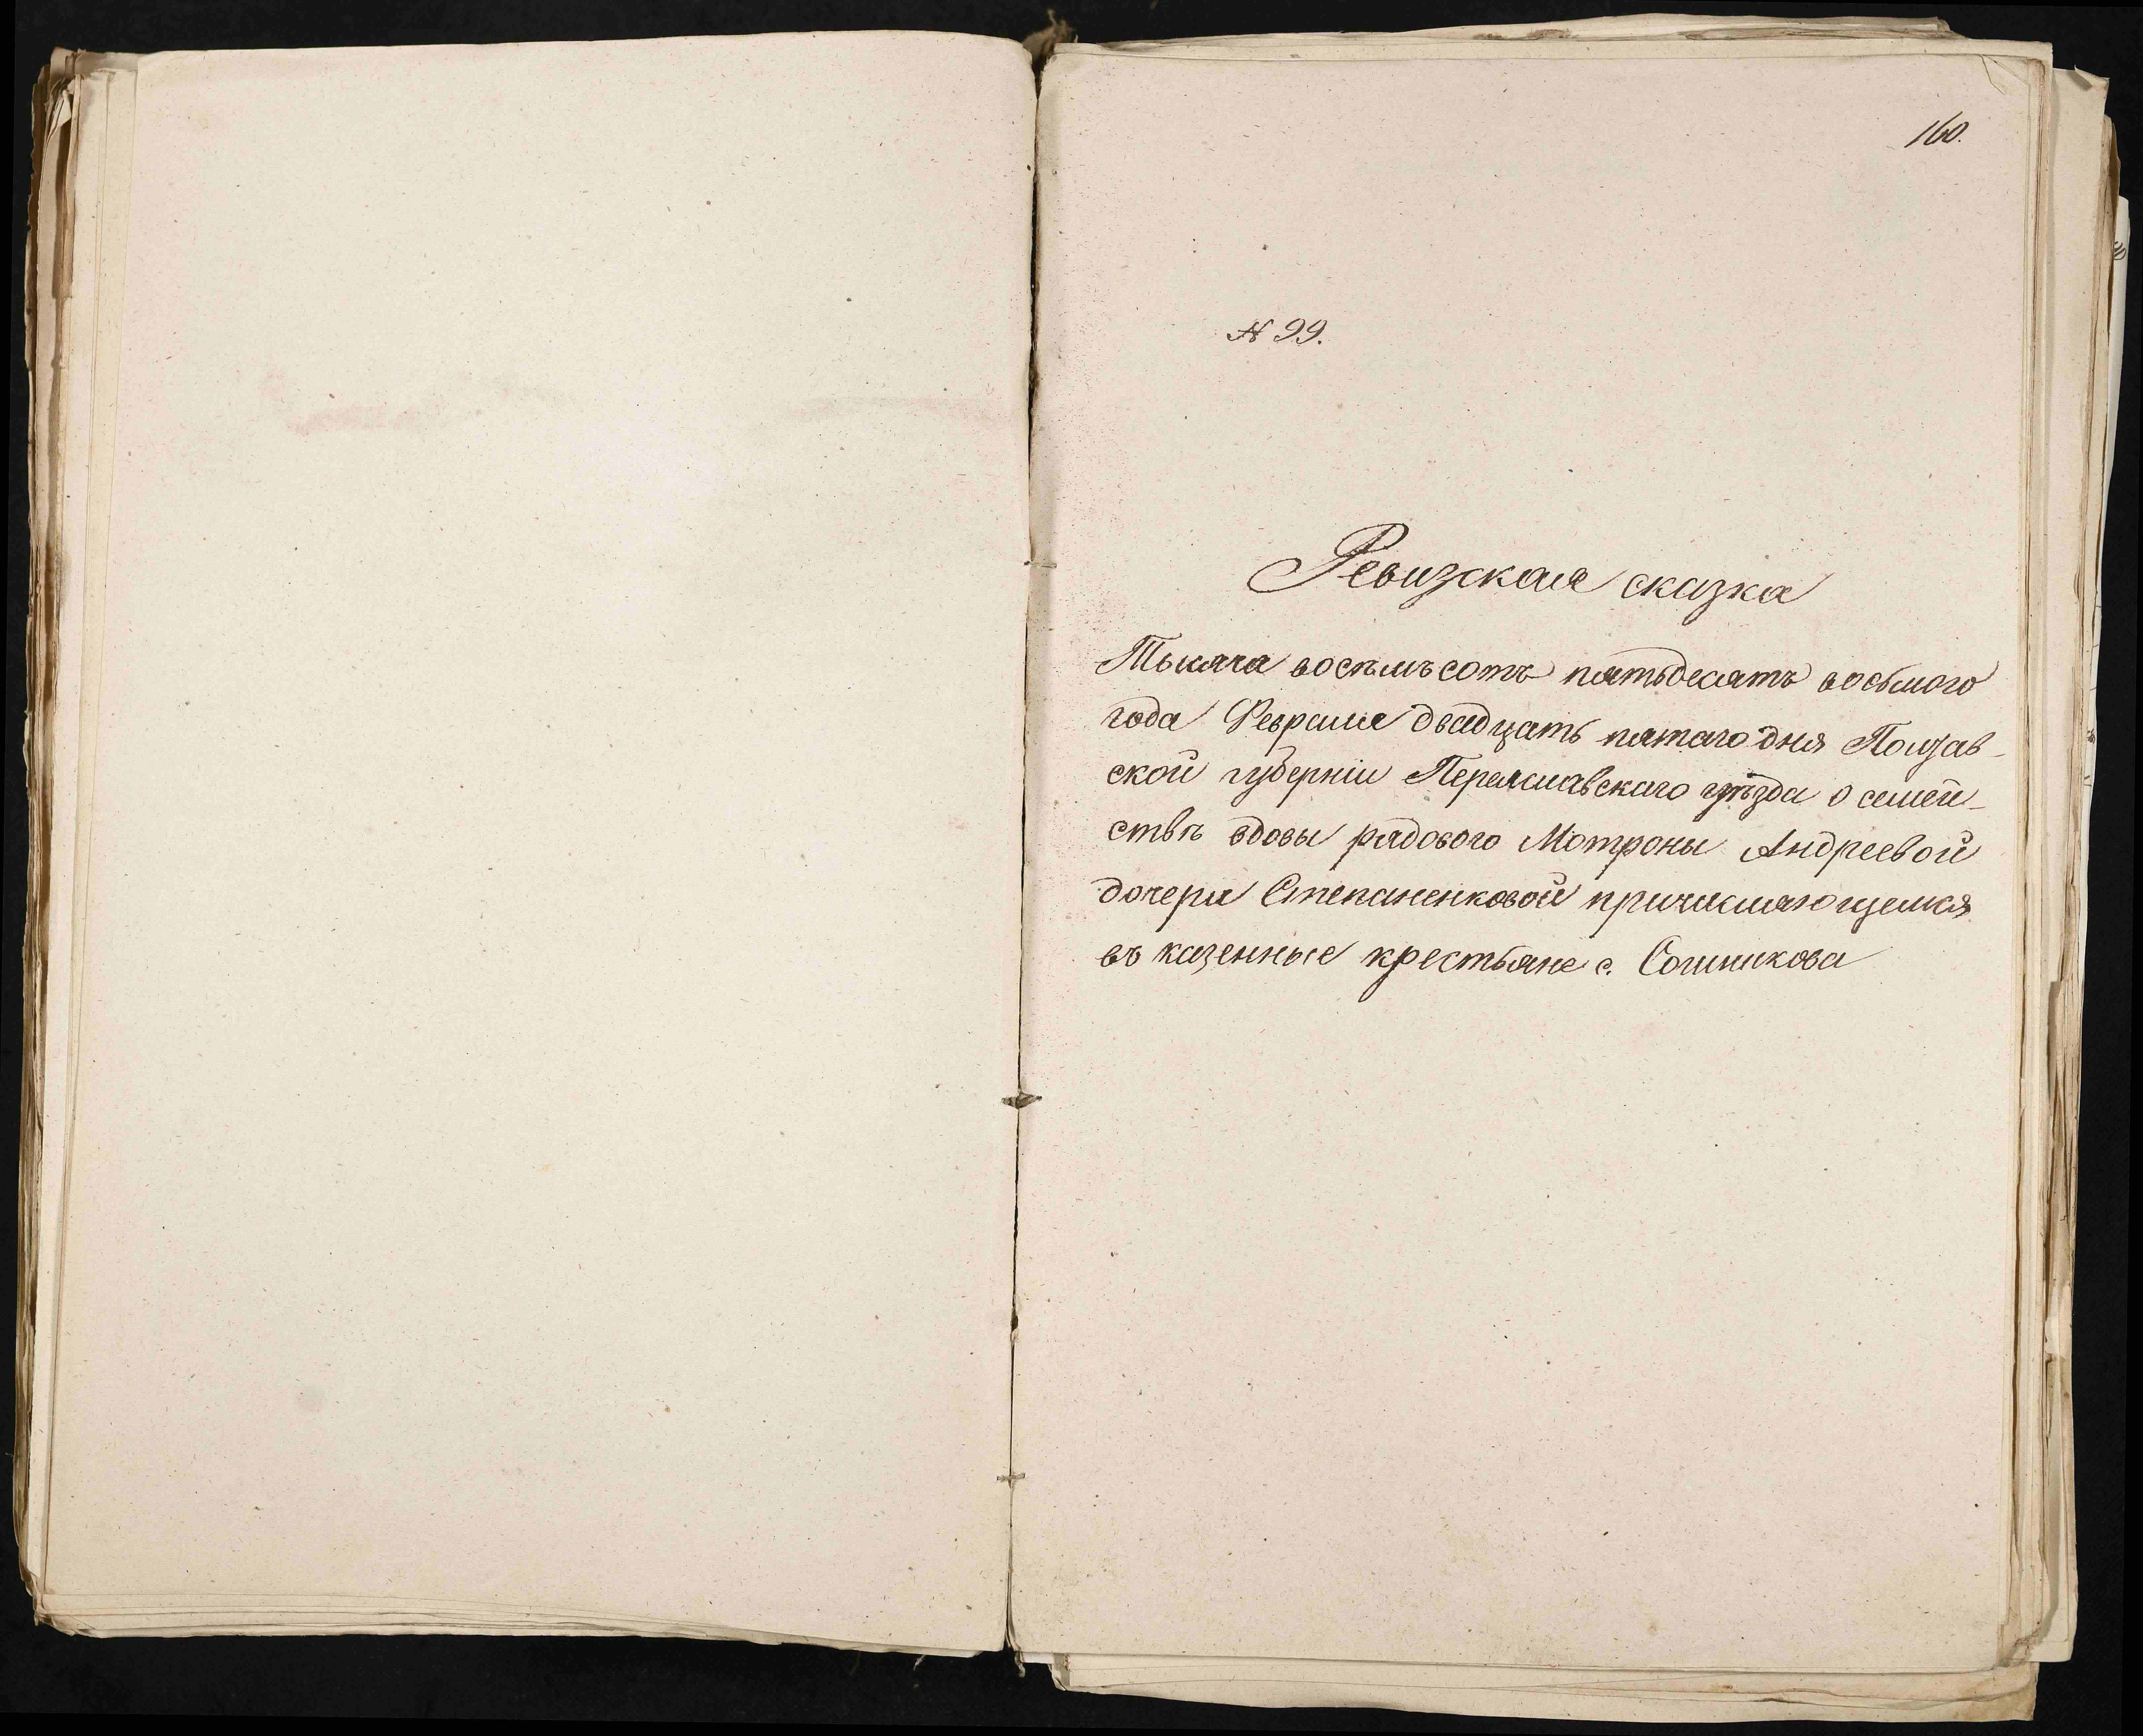 160.
№ 99.
Ревизская сказка
Тысяча восѣмьсотъ пятьдесятъ восьмого
года Февраля двадцать пятаго дня Полтав-
ской губерніи Переяславского уѣзда о семей-
ствѣ вдовы рядового Мотроны Андреевой
дочери Степаненковой причисляющемся
въ казенные крестьяне с. Сошникова